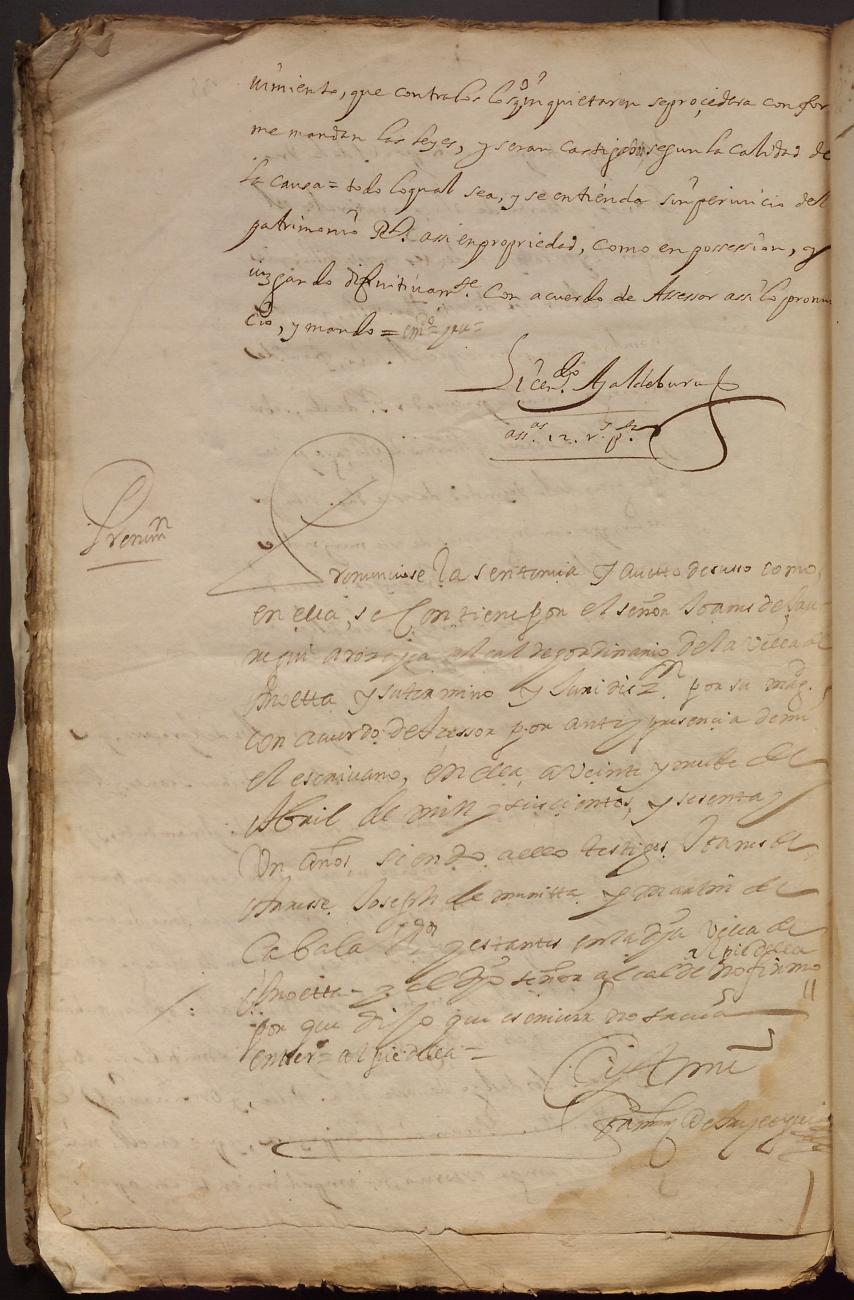 uimiento, que contra los los q̃ inquietaren se proçedera confor
me mandan las leyes, y seran castigados segun la calidad de
la causa = todo lo qual sea, y se entienda sin perjuicio del
patrimonio Rl. assi en propriedad, como en possession, y
juzgando difinitiuamte. Con acuerdo de Assessor assi lo pronun
cio, y mando =
Licendo. Galdeburu
assas. 12. rs. pta
Pronunn
Pronunciose la sentencia y autto de suso como,
en ella, se Contiene por el señor Joanes de Jau
regui arozeya alcalde ordinario de la Villa de
Anoetta y su termino y Juridizn. por su magd.
con acuerdo de Asessor por ante y presencia de mi
el escriuano, en ella a veinte y nuebe de
Abril de mill y seiscientos, y sesenta y
Un años, siendo a ello testigos Joanes de
Joseph de munitta y martin de
Cabala y estantes en la dha Villa de
Anoetta - y el dho señor alcalde no firmo al pie della
por que dixo que escriuir no sauia
enttere. = al pie della =
Ante mi